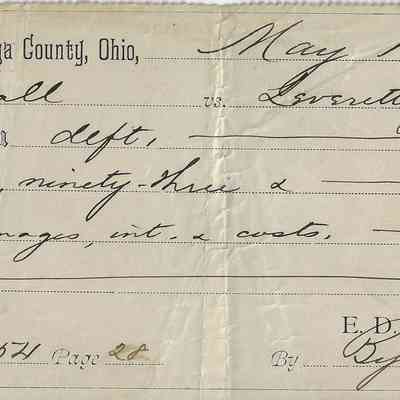 ga County, Ohio, May 1
all vs. Leverett
n deft,
, ninety-three &
mages, int. & costs.
E. D.
54 Page 28 By By